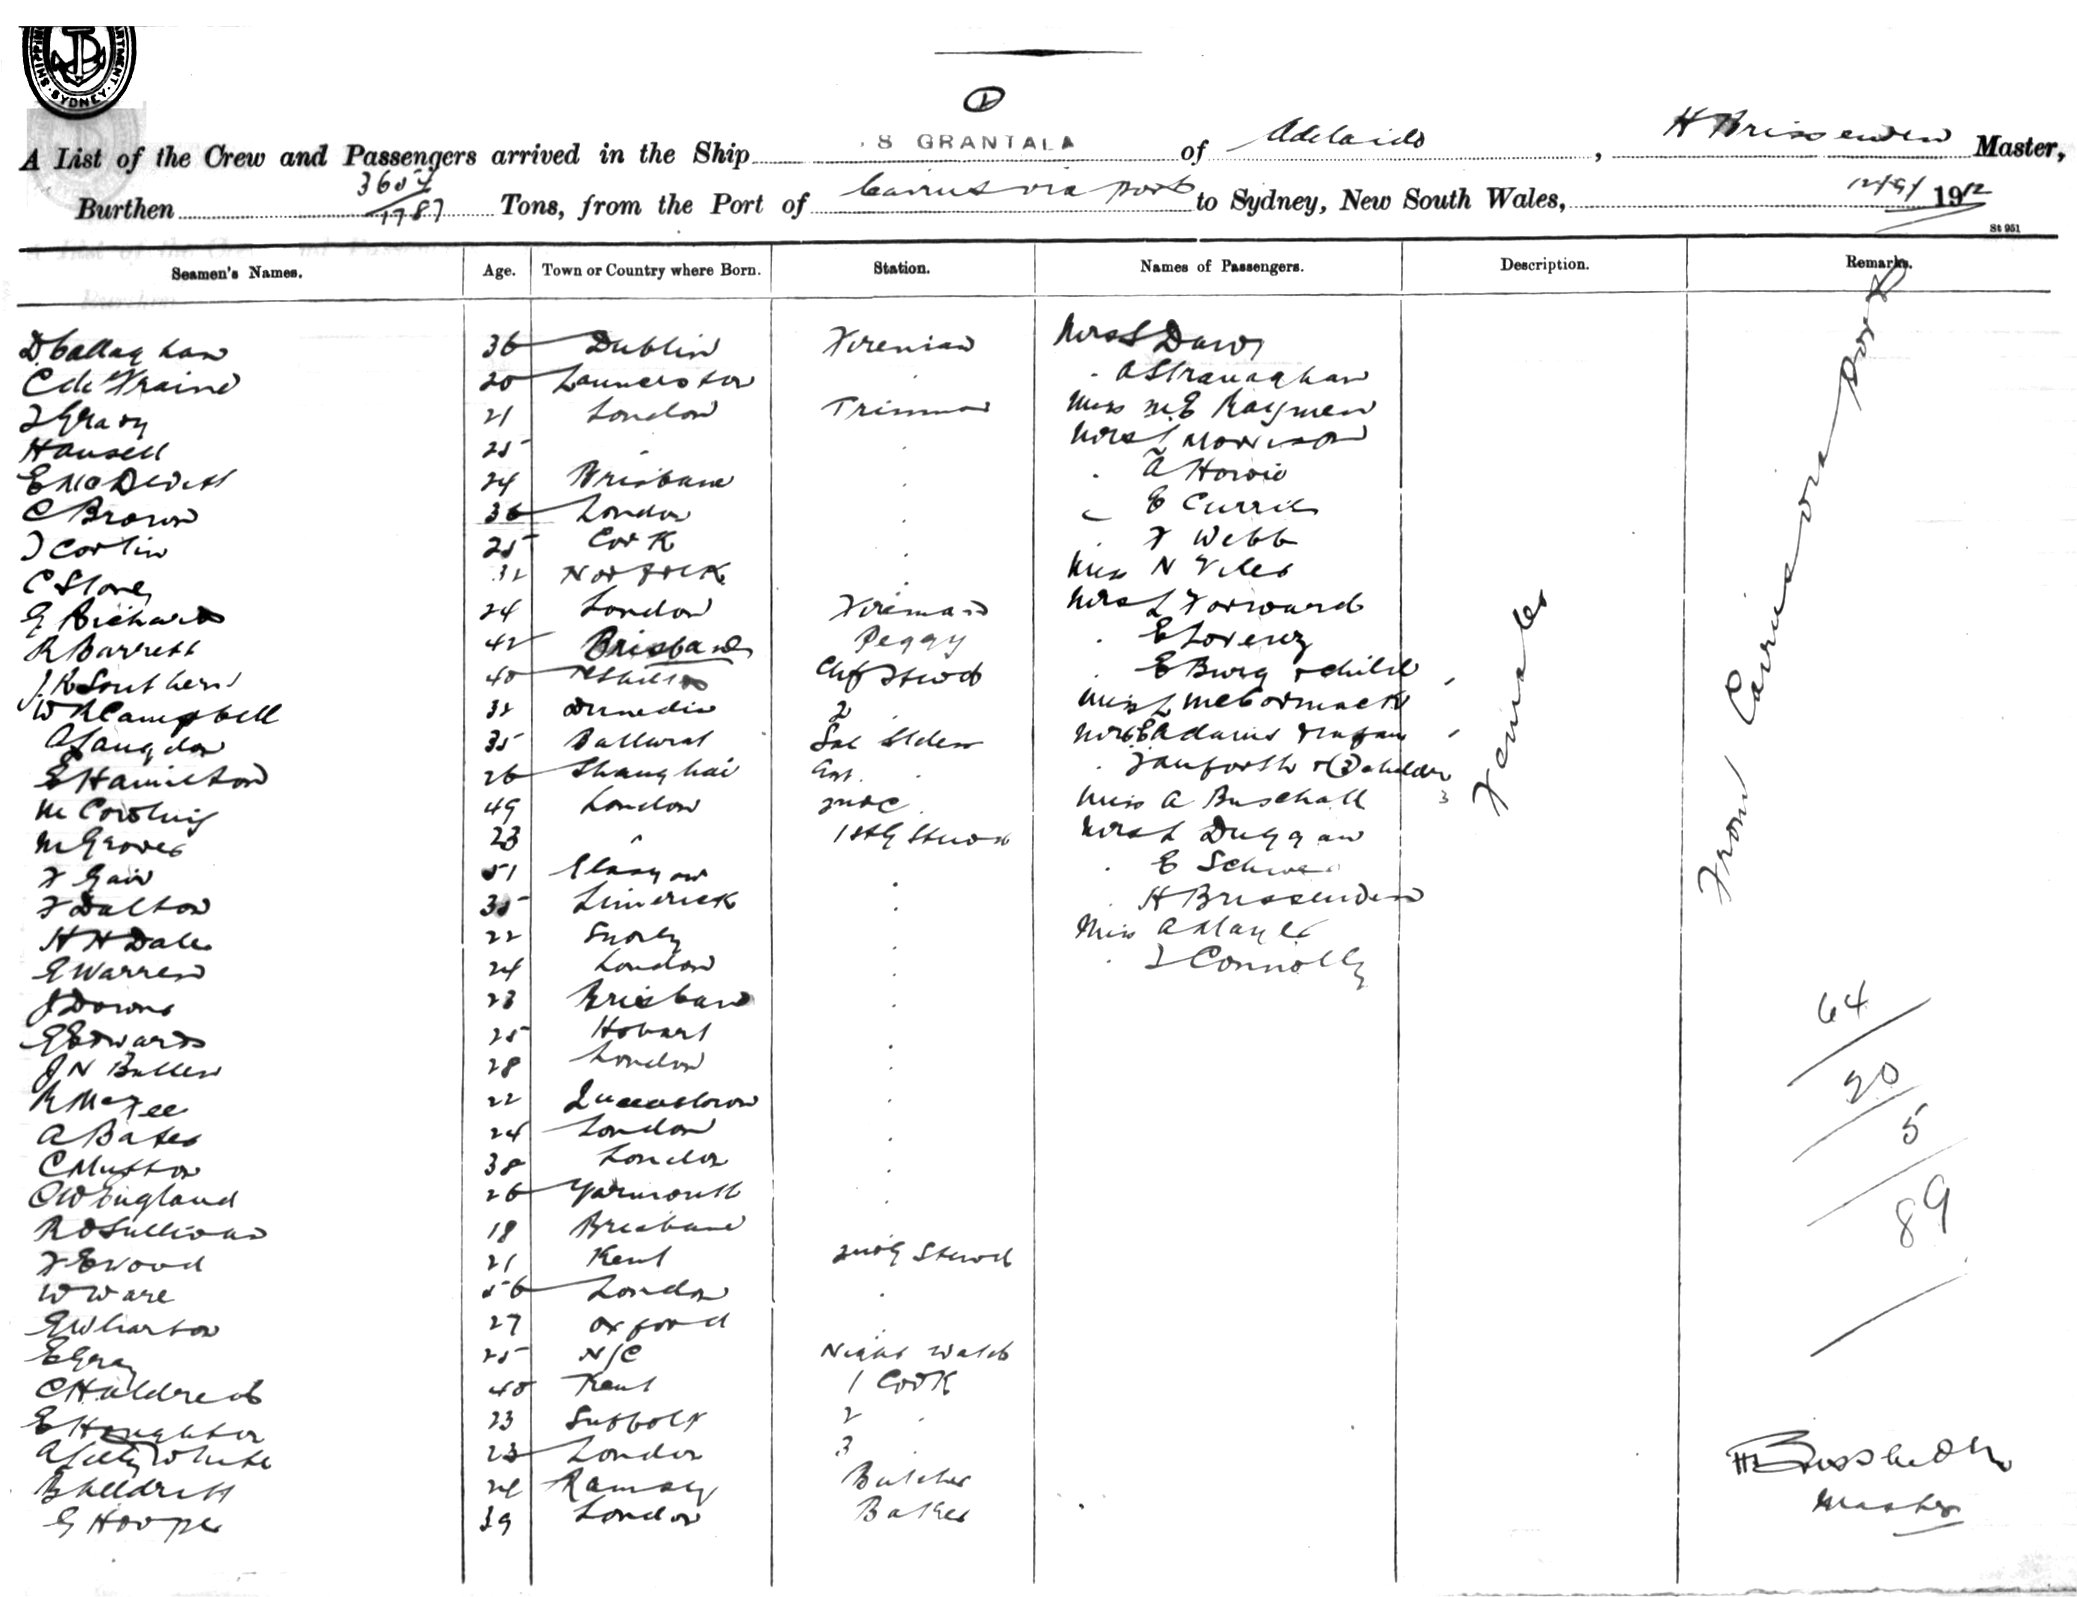 SHIPPING DEPARTMENT SYDNEY
1
A List of the Crew and Passengers arrived in the Ship S GRANTALA of Adelaide, H Brissenden Master,
Burthen 3654/1787 Tons, from the Port of Cairns via ports to Sydney, New South Wales, 12/9/ 1912
St 951
Seamen's Names. Age. Town or Country where Born. Station. Names of Passengers. Description. Remarks.
D Callaghan 36 Dublin Fireman Mrs L Daws
C de Fraine 20 Launceston " " A Stranaghan
J Grady 21 London Trimmer Miss M.E Raymen
Hansell 25 " " Mrs L Morrison
E McDevitt 24 Brisbane " " A Howie
C Brown 36 London " " E Currie
J Corlin 25 Cork " " F Webb
C Stone 32 Norfolk " Miss N Viles
G Richards 24 London Fireman Mrs L Forward
R Barrett 42 Brisbane Peggy " E Lorenz
J. R Southern 40 Chf Stewd " E Burg & child
W R Campbell 32 Dunedin 2 " Miss L McCormack
A Langdon 35 Ballarat Sal Stdess Mrs E Adams & infant
E Hamilton 26 Shanghai " Danforth & (3) children 3
M Cowling 49 London 2nd C " Miss A Buschall
M Groves 23 " 1st G Stewd Mrs L Duggan
F Gair 51 Glasgow " " E
F Dalton 35 Limerick " " H Brissenden
H H Dale 22 " Miss A
G Warren 24 London " " J Connolly
J Downs 23 Brisbane "
G Edwards 25 Hobart "
J N Bullen 28 London "
R McFee 22 Queenstown "
A Bates 24 London "
C Mutton 38 London "
C W England 26 Yarmouth "
R O Sullivan 18 Brisbane "
F E Wood 21 Kent 2nd G Stewd
W Ware 56 London "
G Wharton 27 Oxford "
E Gray 25 N/C Night Watch
C Huldreth 40 Kent 1 Cook
E Houghton 23 Suffolk 2 "
A White 23 London 3 "
B 24 Ramsey Butcher
G Hooper 39 London Baker
Females
From Cairns via Ports
64
20
5
89
H Brissenden
Master